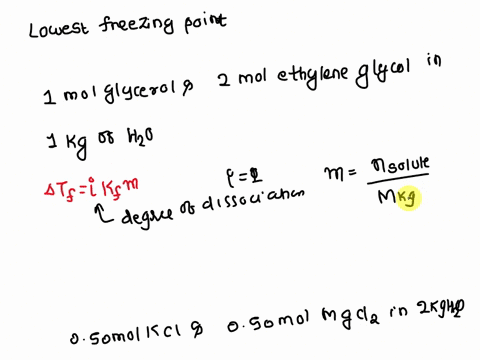 Lowest freezing point
1 mol glycerol & 2 mol ethylene glycol in
1 kg of H2O
ΔTf = i Kf m
degree of dissociation
m = n solute / M kg
0.50 mol KCl & 0.50 mol MgCl2 in 2 kg H2O